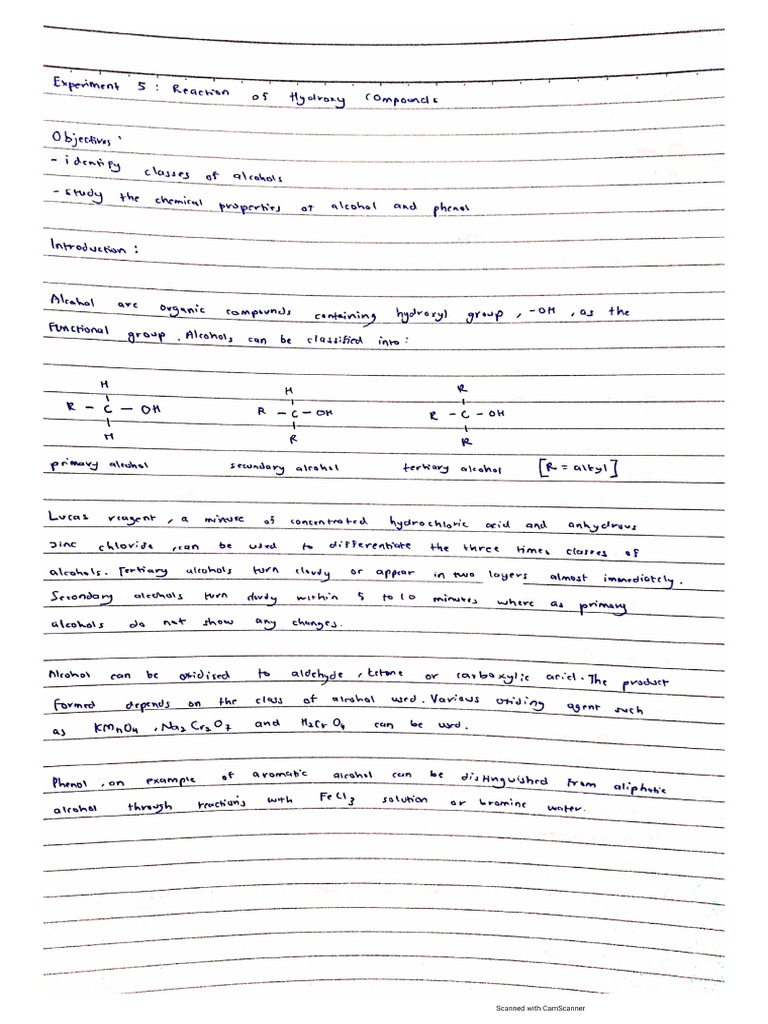 Experiment 5 : Reaction of Hydroxy Compounds
Objectives :
- identify classes of alcohols
- study the chemical properties of alcohol and phenol
Introduction :
Alcohol are organic compounds containing hydroxyl group , -OH , as the
functional group . Alcohols can be classified into :
H H R
R - C - OH R - C - OH R - C - OH
H R R
primary alcohol secondary alcohol tertiary alcohol [R = alkyl]
Lucas reagent , a mixture of concentrated hydrochloric acid and anhydrous
zinc chloride , can be used to differentiate the three classes of
alcohols . Tertiary alcohols turn cloudy or appear in two layers almost immediately .
Secondary alcohols turn within 5 to 10 minutes where as primary
alcohols do not show any changes .
Alcohol can be oxidised to aldehyde , ketone or carboxylic acid . The product
formed depends on the class of alcohol used . Various agent such
as KMnO4 , Na2Cr2O7 and H2CrO4 can be used .
Phenol , an example of aromatic alcohol can be distinguished from aliphatic
alcohol through reactions with FeCl3 solution or bromine water .
Scanned with CamScanner